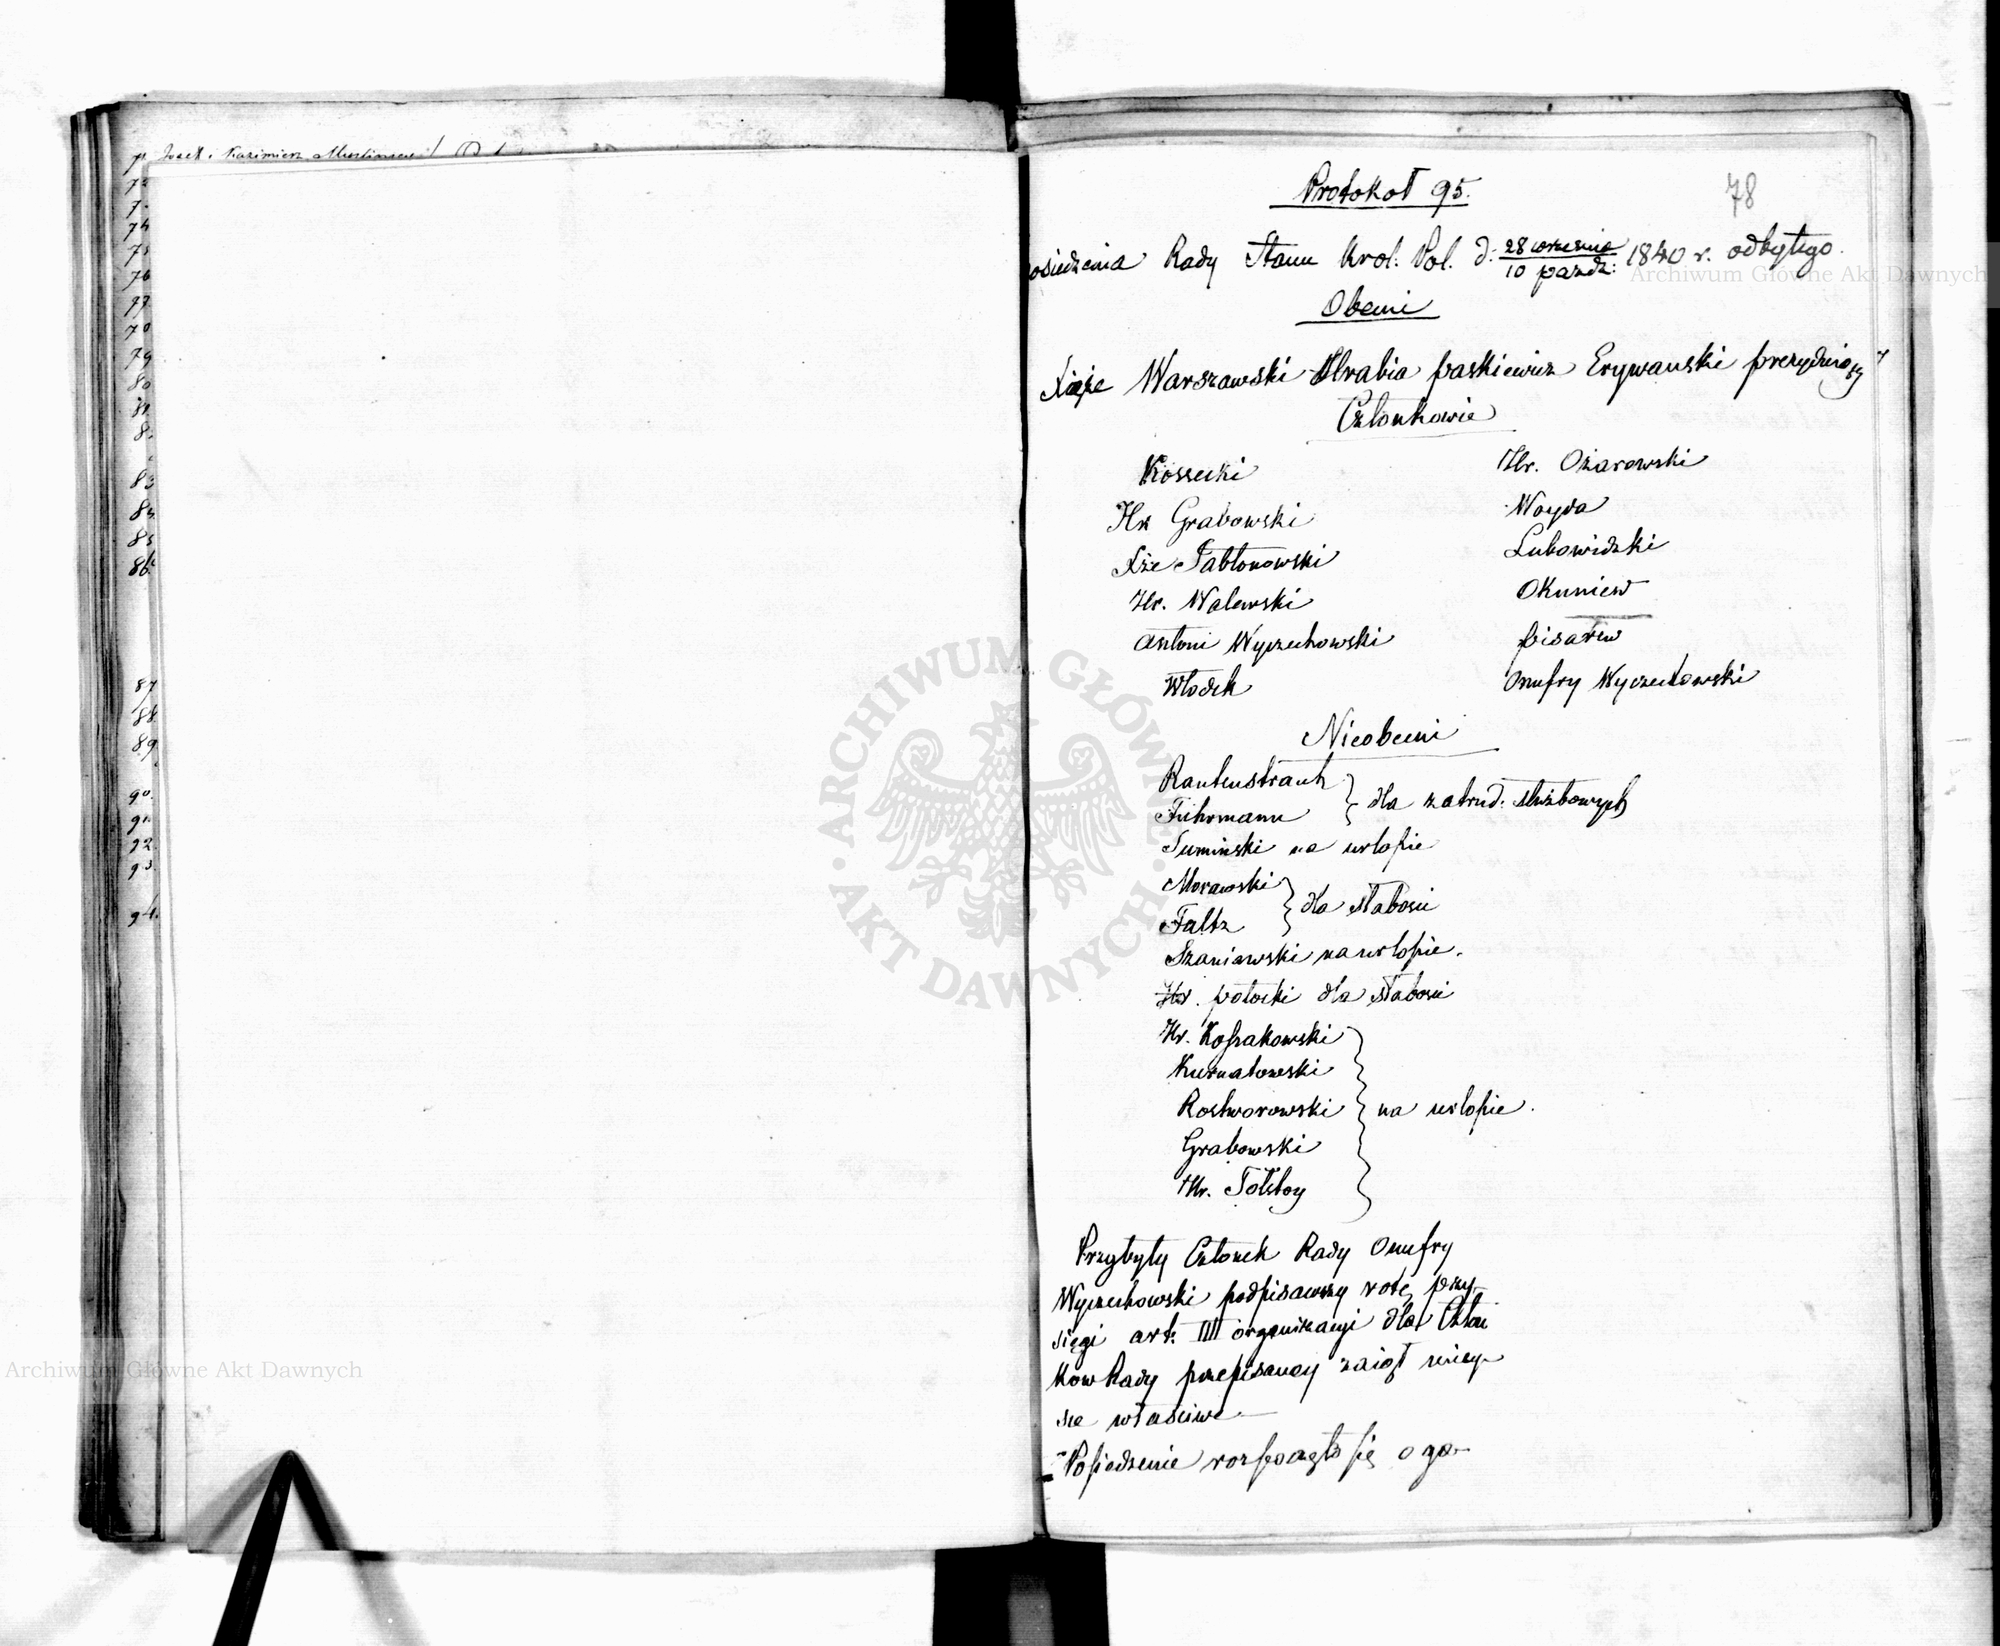 71. Józef i Kazimierz
72
74
75
76
77
78
79
80
81.
8.
83
84.
85
86.
87
88.
89.
90.
91.
92.
93.
94.
78
Protokoł 95.
posiedzenia Rady Stanu Krol: Pol. d: 28 września / 10 pazdz: 1840 r. odbytego.
Obecni
Xiąże Warszawski Hrabia Paskiewicz Erywanski prezydujący
Członkowie
Kossecki
Hr Grabowski
Xże Jabłonowski
Hr. Walewski
Antoni Wyczechowski
Włodek
Hr. Ożarowski
Woyda
Lubowidzki
Okuniew
Pisarew
Onufry Wyczechowski
Nieobecni
Rautenstrauh
Fuhrmann } dla zatrud: służbowych
Sumiński na urlopie
Morawski
Faltz } dla słabości
Szaniawski na urlopie.
Hr. Potocki dla słabości
Hr. Kossakowski
Kurnatowski
Rostworowski } na urlopie.
Grabowski
Hr. Tołstoy
Przybyły Członek Rady Onufry
Wyczechowski podpisawszy rotę przy-
sięgi art: IIII organizacyi dla Człon
kow Rady przepisaney zaiął miey-
sce właściwe
Posiedzenie rozpoczęło się o go-
ARCHIWUM GŁÓWNE · AKT DAWNYCH ·
Archiwum Główne Akt Dawnych
Archiwum Główne Akt Dawnych